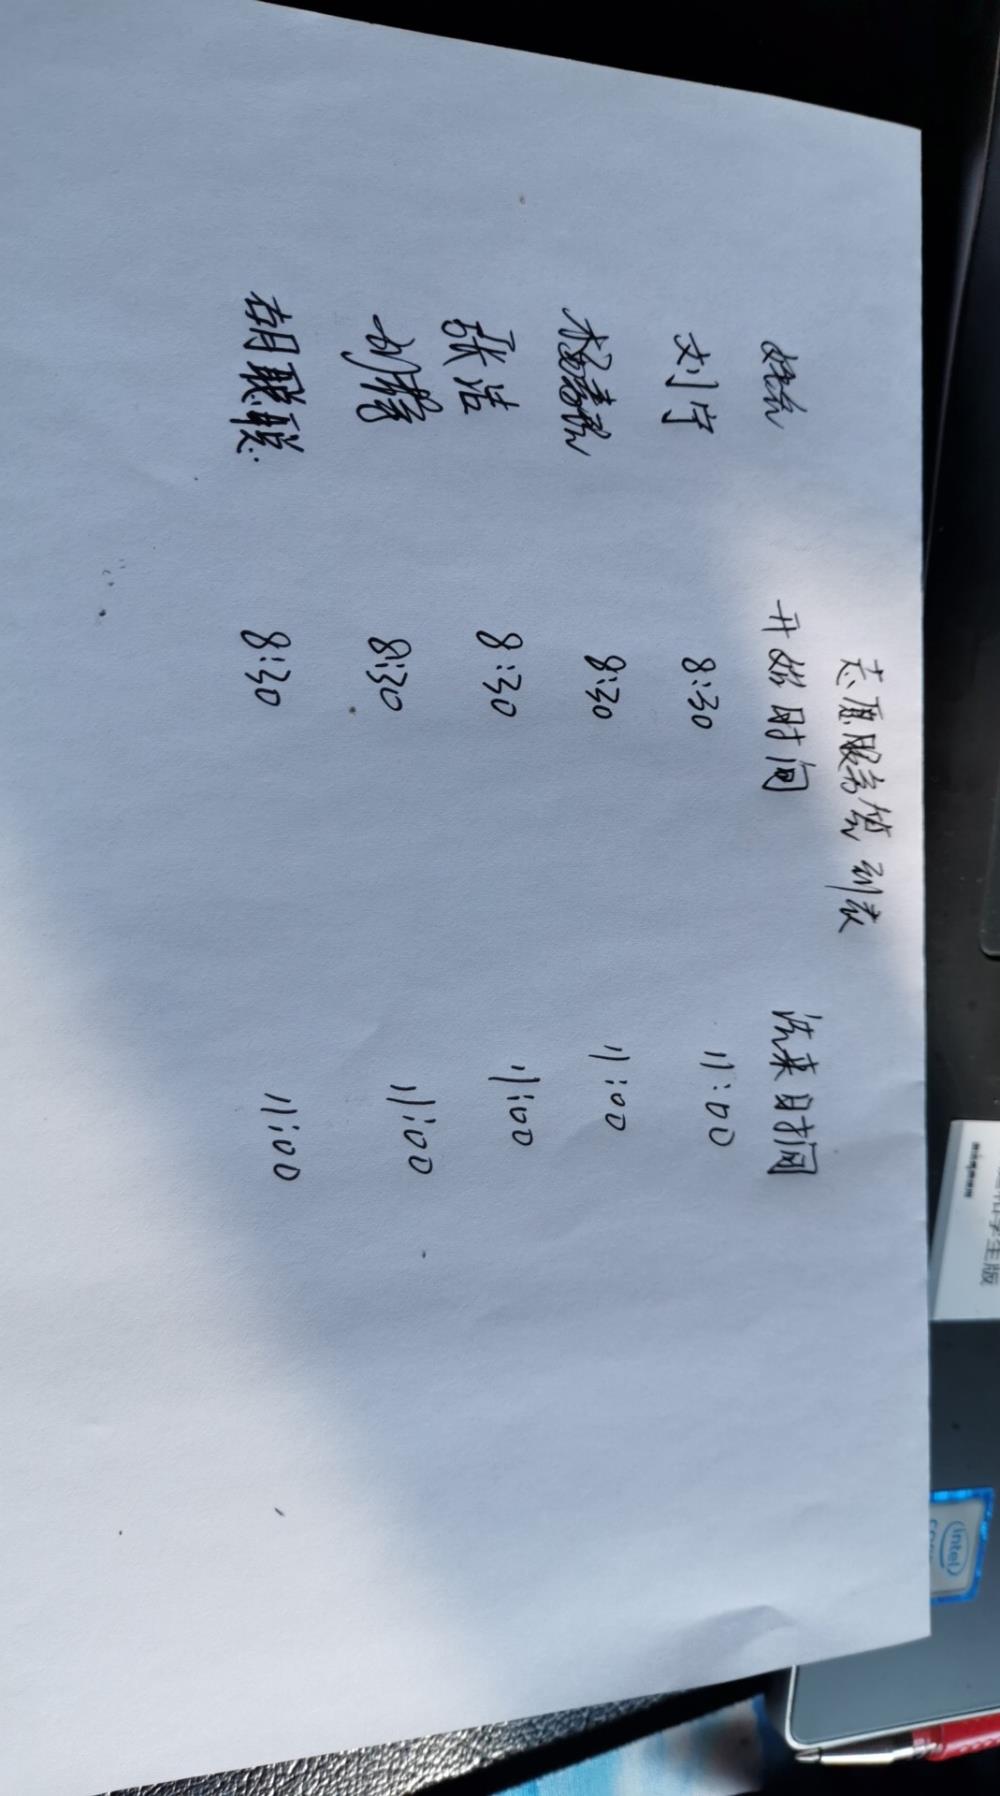 志愿服务签到表
姓名 开始时间 结束时间
刘宁 8:30 11:00
杨 8:30 11:00
张浩 8:30 11:00
刘 8:30 11:00
胡聪聪 8:30 11:00
学生版
intel